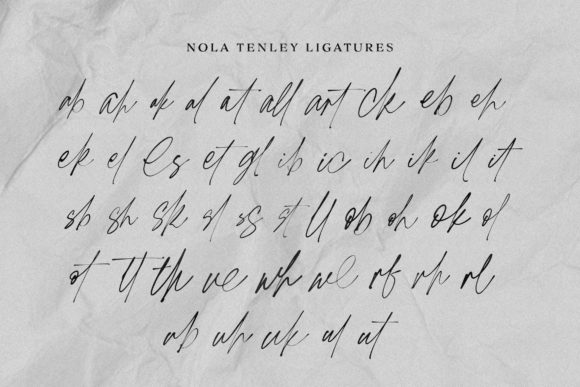 NOLA TENLEY LIGATURES
ab ah ak al at all art ck eb eh
ek el es et gl ib ic ih ik il it
sb sh sk sl ss st ll ob oh ok ol
ot tt th ve wh we rb rh rl
ub uh uk ul ut